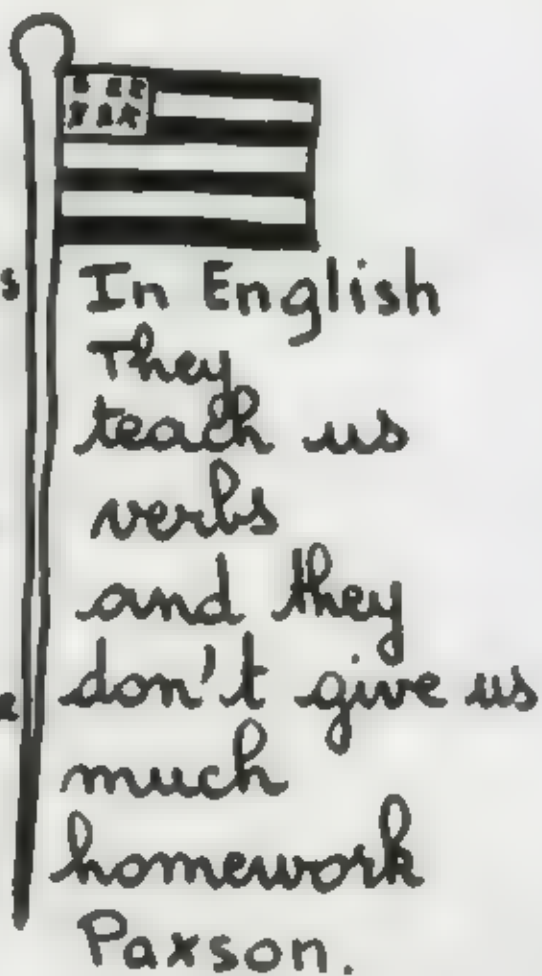 In English
They
teach us
verbs
and they
don't give us
much
homework
Paxson.